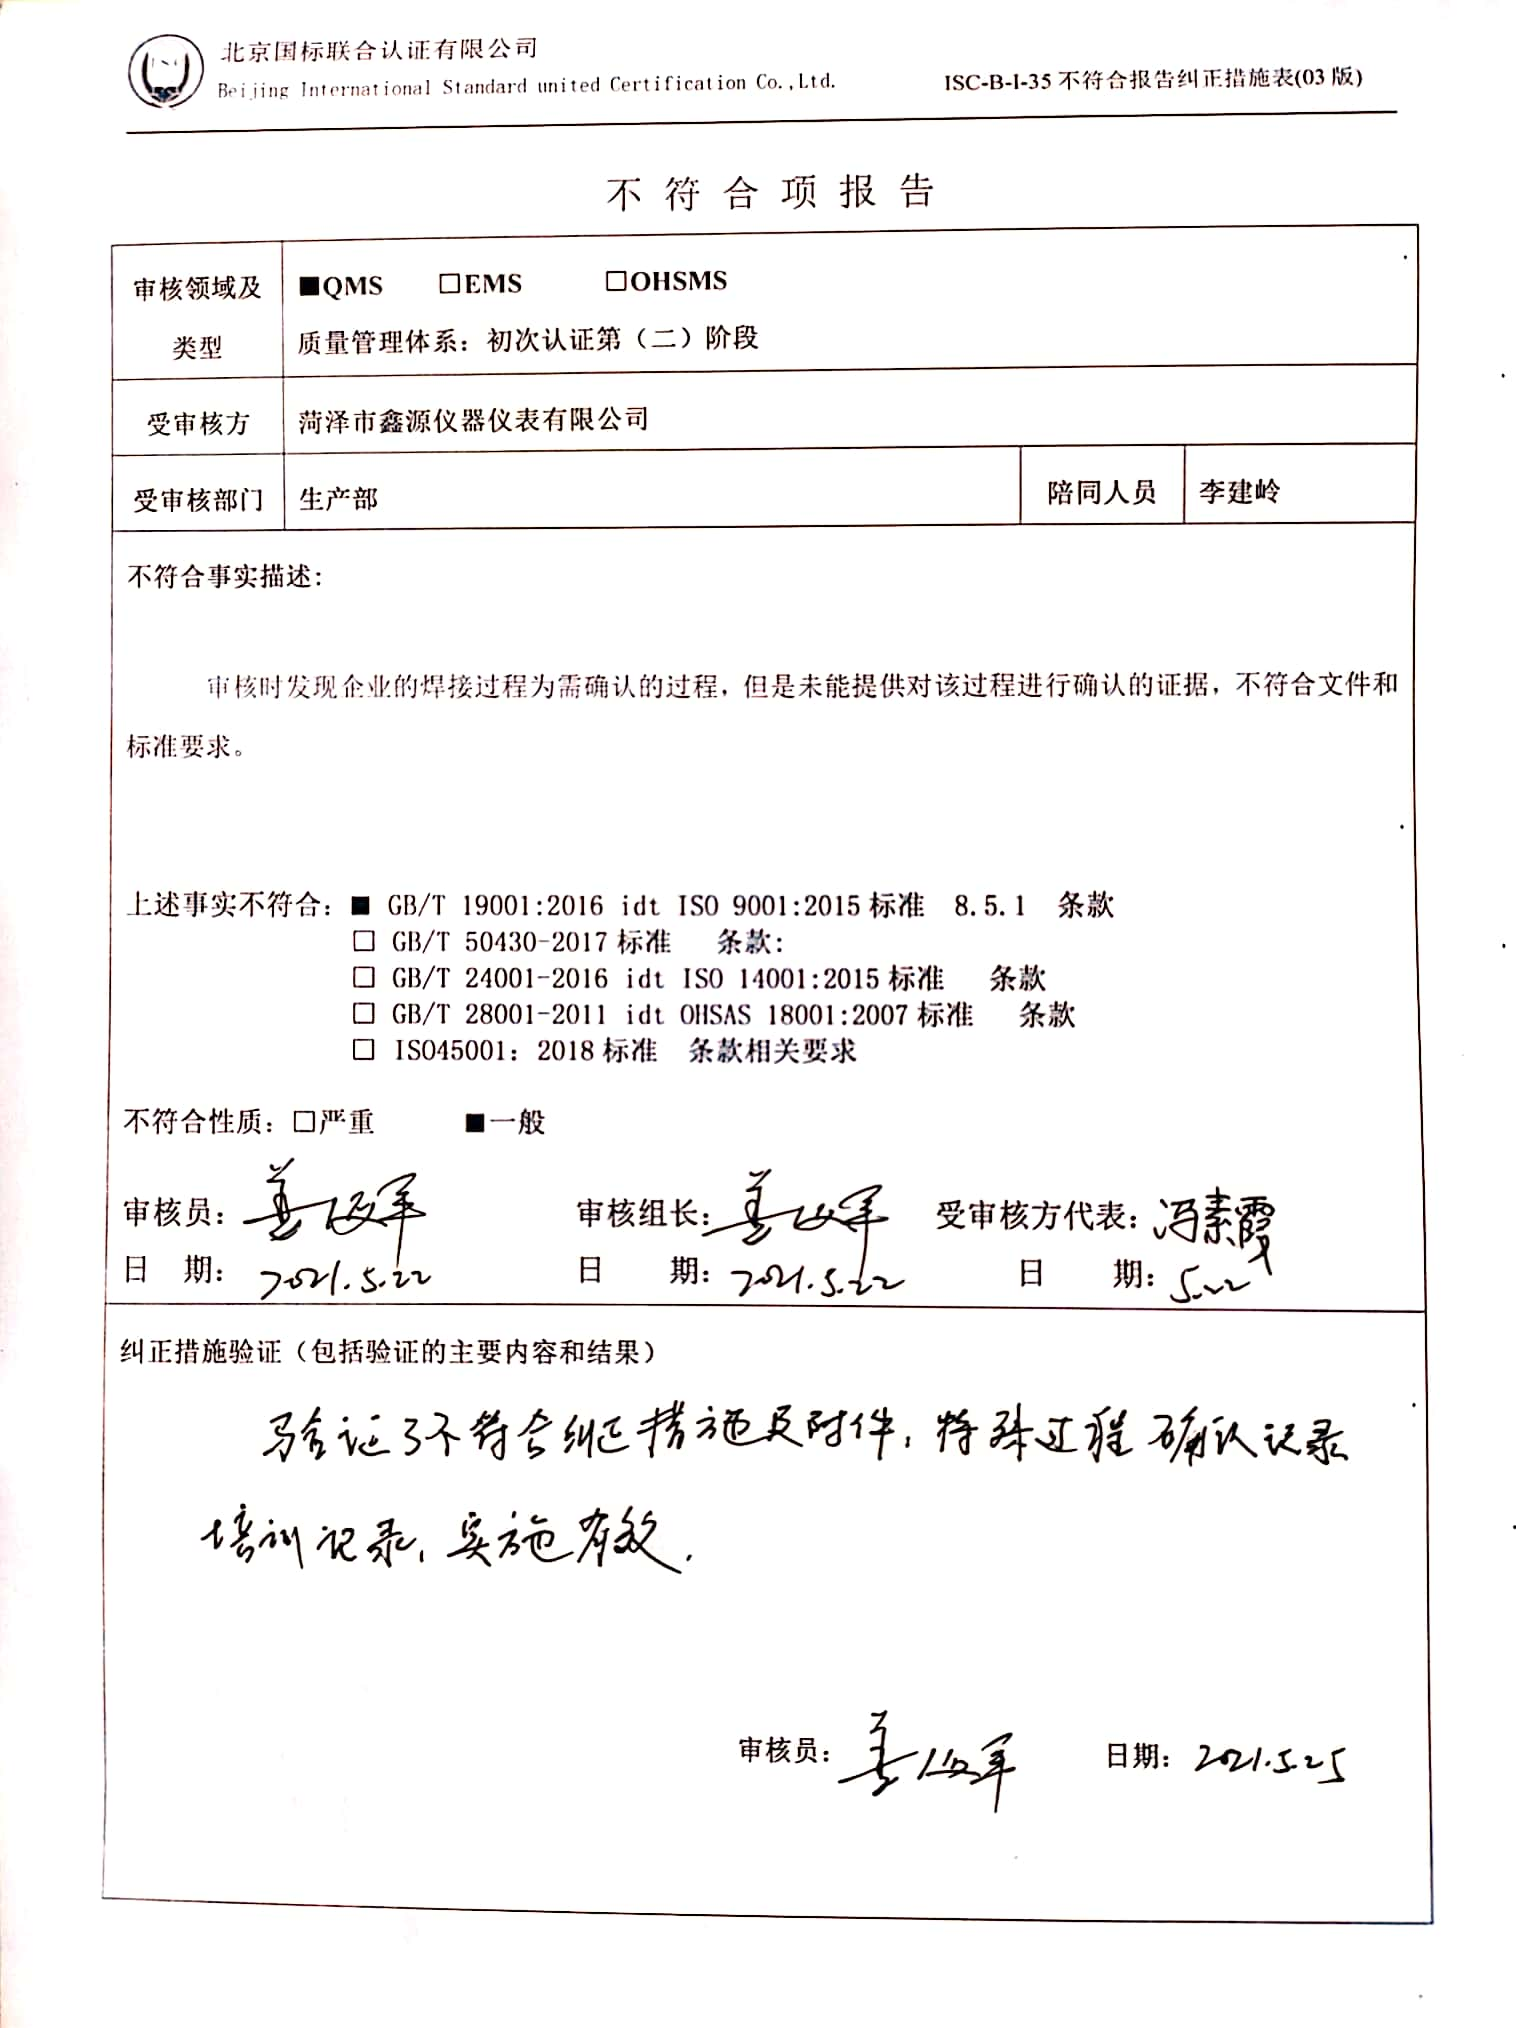 北京国标联合认证有限公司
Beijing International Standard united Certification Co.,Ltd.
ISC-B-I-35 不符合报告纠正措施表(03 版)
不符合项报告
审核领域及类型
■QMS □EMS □OHSMS
质量管理体系：初次认证第（二）阶段
受审核方 菏泽市鑫源仪器仪表有限公司
受审核部门 生产部 陪同人员 李建岭
不符合事实描述：
审核时发现企业的焊接过程为需确认的过程，但是未能提供对该过程进行确认的证据，不符合文件和
标准要求。
上述事实不符合：■ GB/T 19001:2016 idt ISO 9001:2015 标准 8.5.1 条款
□ GB/T 50430-2017 标准 条款:
□ GB/T 24001-2016 idt ISO 14001:2015 标准 条款
□ GB/T 28001-2011 idt OHSAS 18001:2007 标准 条款
□ ISO45001：2018 标准 条款相关要求
不符合性质：□严重 ■一般
审核员： 审核组长： 受审核方代表：冯素霞
日 期：2021.5.22 日 期：2021.5.22 日 期：5.22
纠正措施验证（包括验证的主要内容和结果）
验证了不符合纠正措施及附件，特殊过程确认记录
培训记录，实施有效.
审核员： 日期：2021.5.25